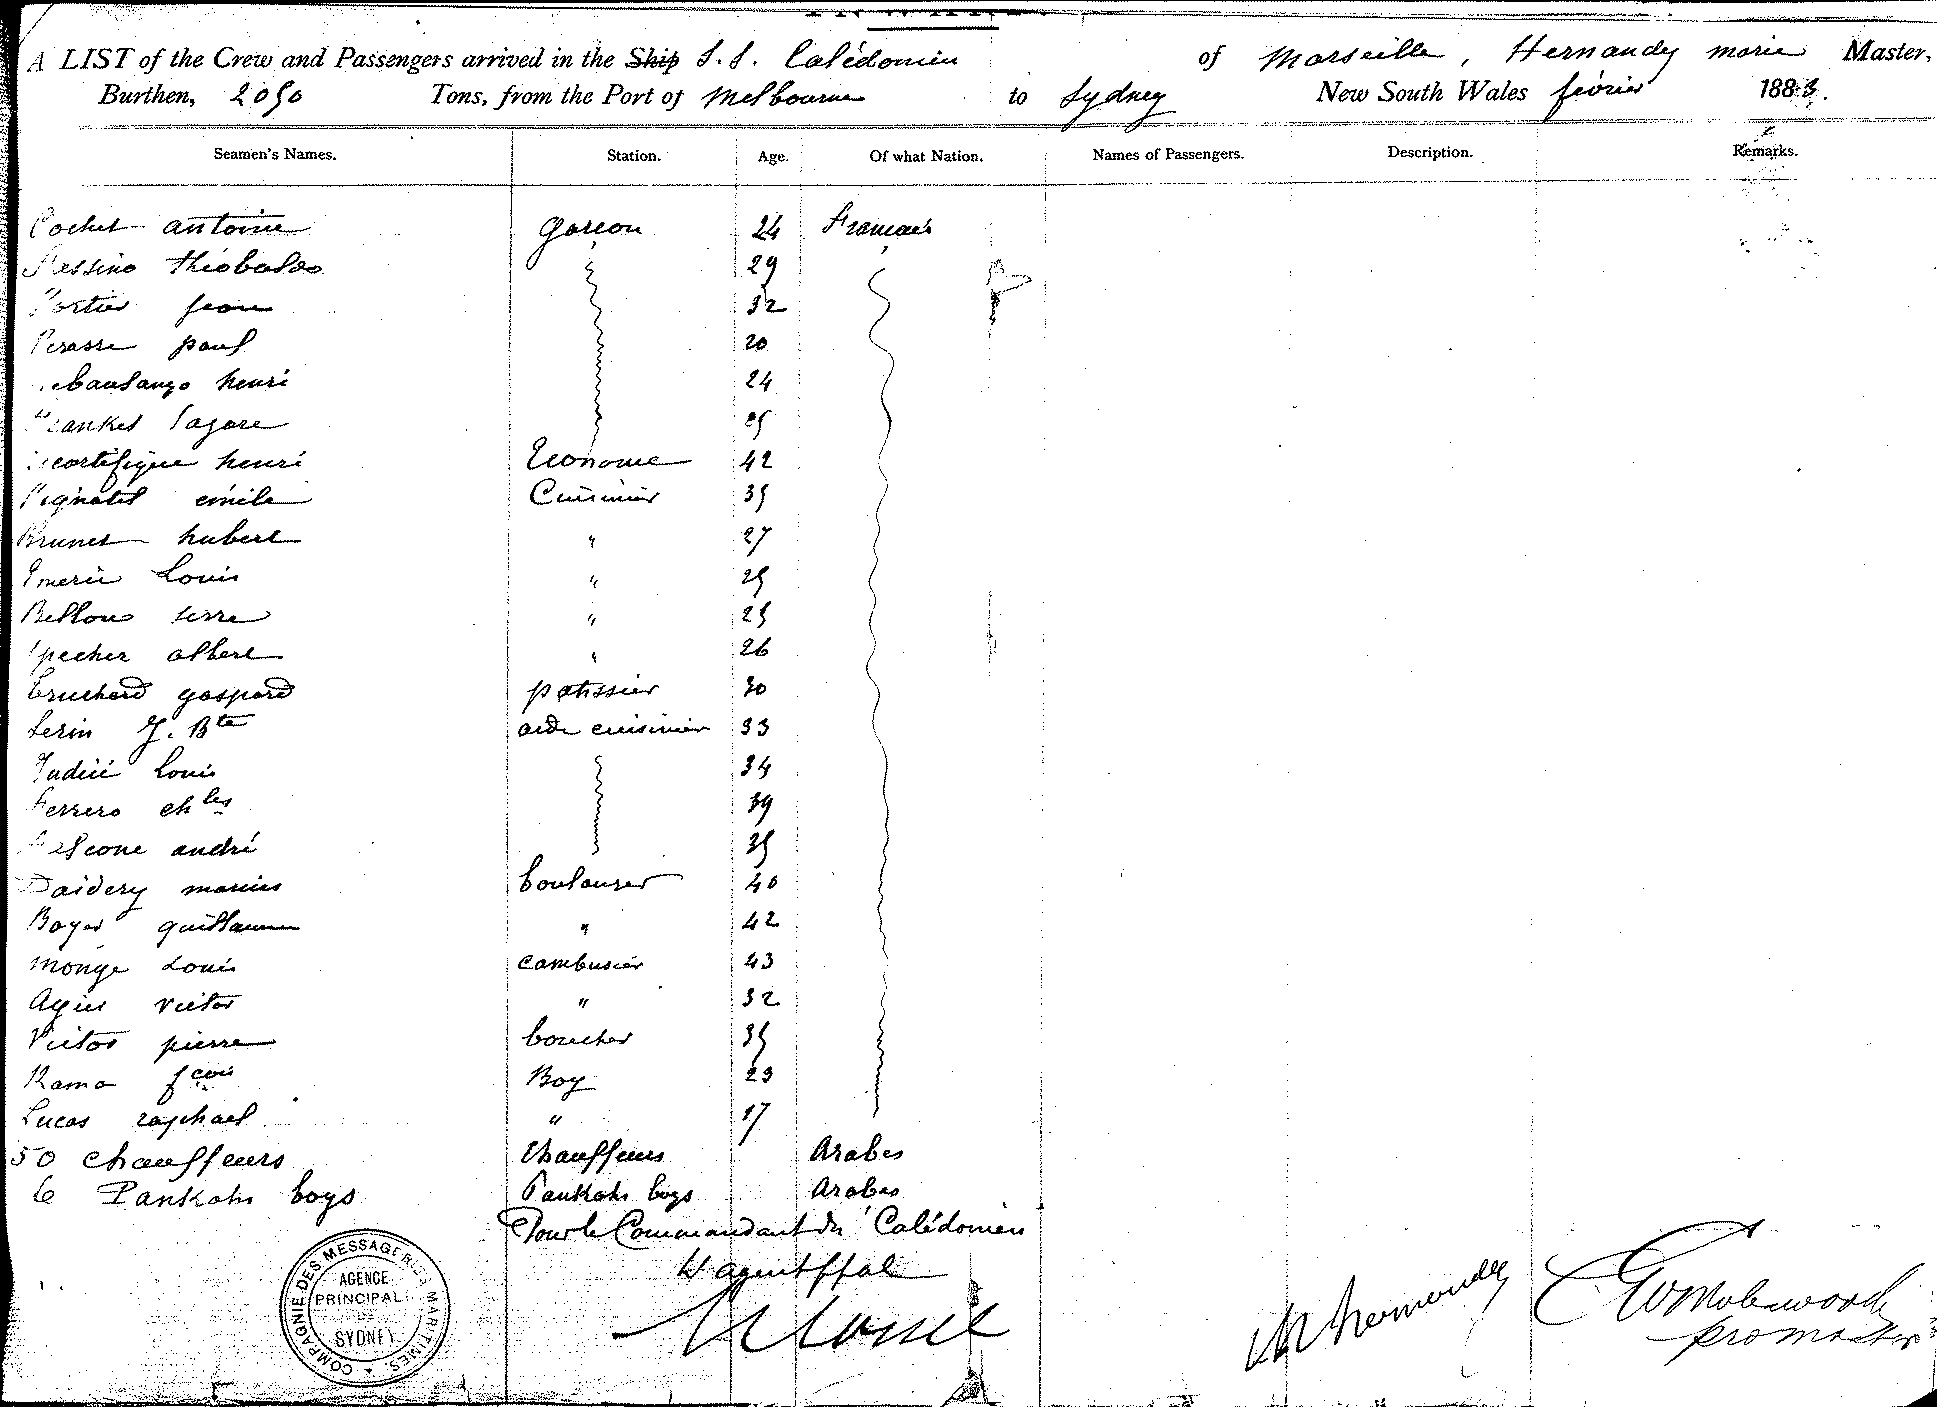 A LIST of the Crew and Passengers arrived in the Ship S. S. Calédonien of Marseille, Hernandez marie Master,
Burthen, 2050 Tons, from the Port of Melbourne to Sydney New South Wales février 1883.
Seamen's Names. Station. Age. Of what Nation. Names of Passengers. Description. Remarks.
Cochet antoine garcon 24 Francais
Théobaldo 29
jean 32
paul 20
henri 24
lazare
henri Econome 42
émile Cuisinier 35
Brunet hubert " 27
Louis " 25
Bellon " 25
albert " 26
Truchard gaspard patissier 30
Lerin J. Bte aide cuisinier 33
Louis 34
Ferrero chles 39
andré 35
Daidery marius boulanger 40
Boyer guillaume " 42
Monge Louis cambusier 43
Agius victor " 32
Victor pierre boucher 35
Rama fcois Boy 23
Lucas raphael " 17
50 Chauffeurs Chauffeurs Arabes
6 Pankahs boys Pankahs boys Arabes
Pour le Commandant du Calédonien
L'agent ppal
COMPAGNIE DES MESSAGERIES MARITIMES
AGENCE
PRINCIPAL
DE
SYDNEY
pro master